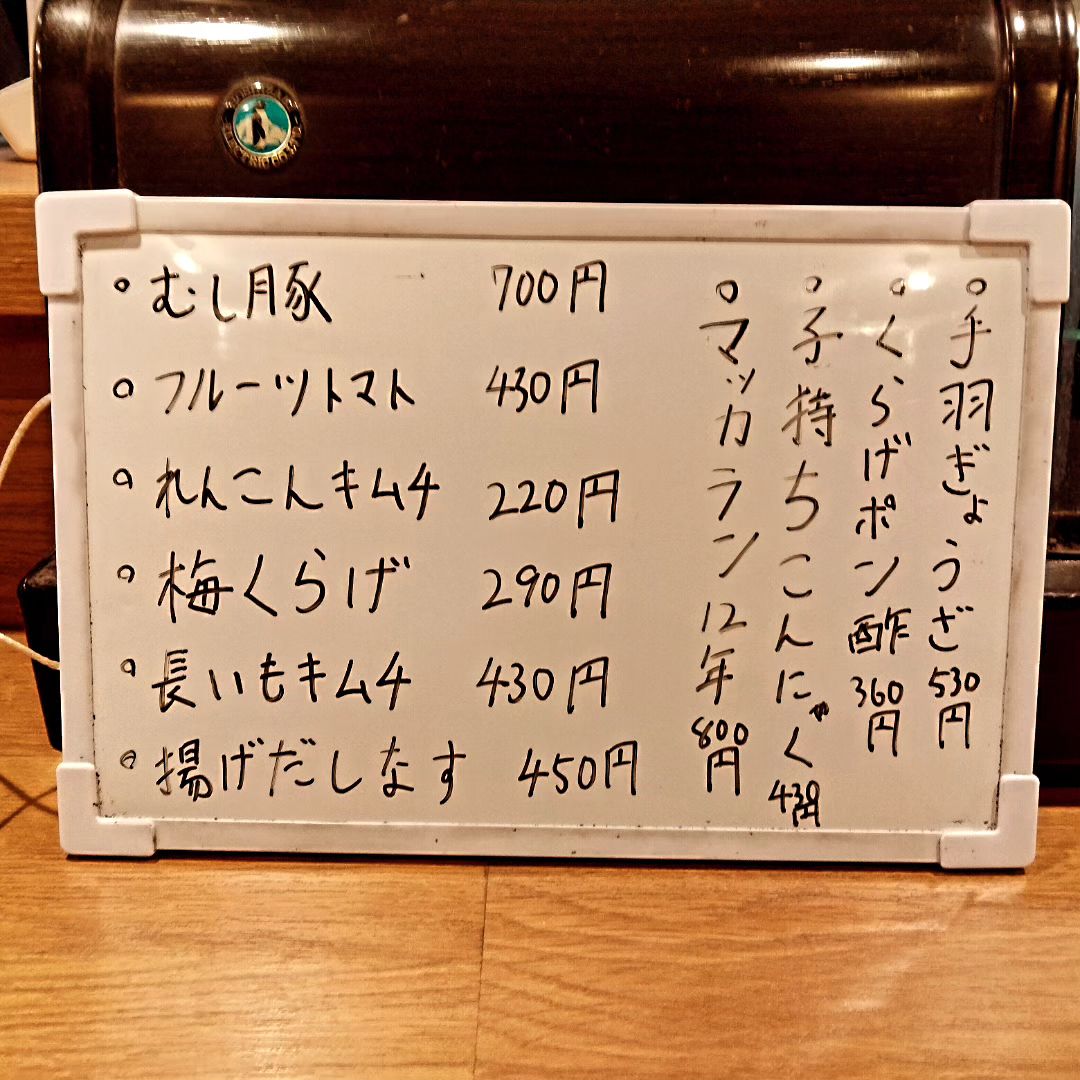 ○むし豚 700円
○フルーツトマト 430円
○れんこんキムチ 220円
○梅くらげ 290円
○長いもキムチ 430円
○揚げだしなす 450円
○手羽ぎょうざ 530円
○くらげポン酢 360円
○子持ちこんにゃく 430円
○マッカラン12年 800円